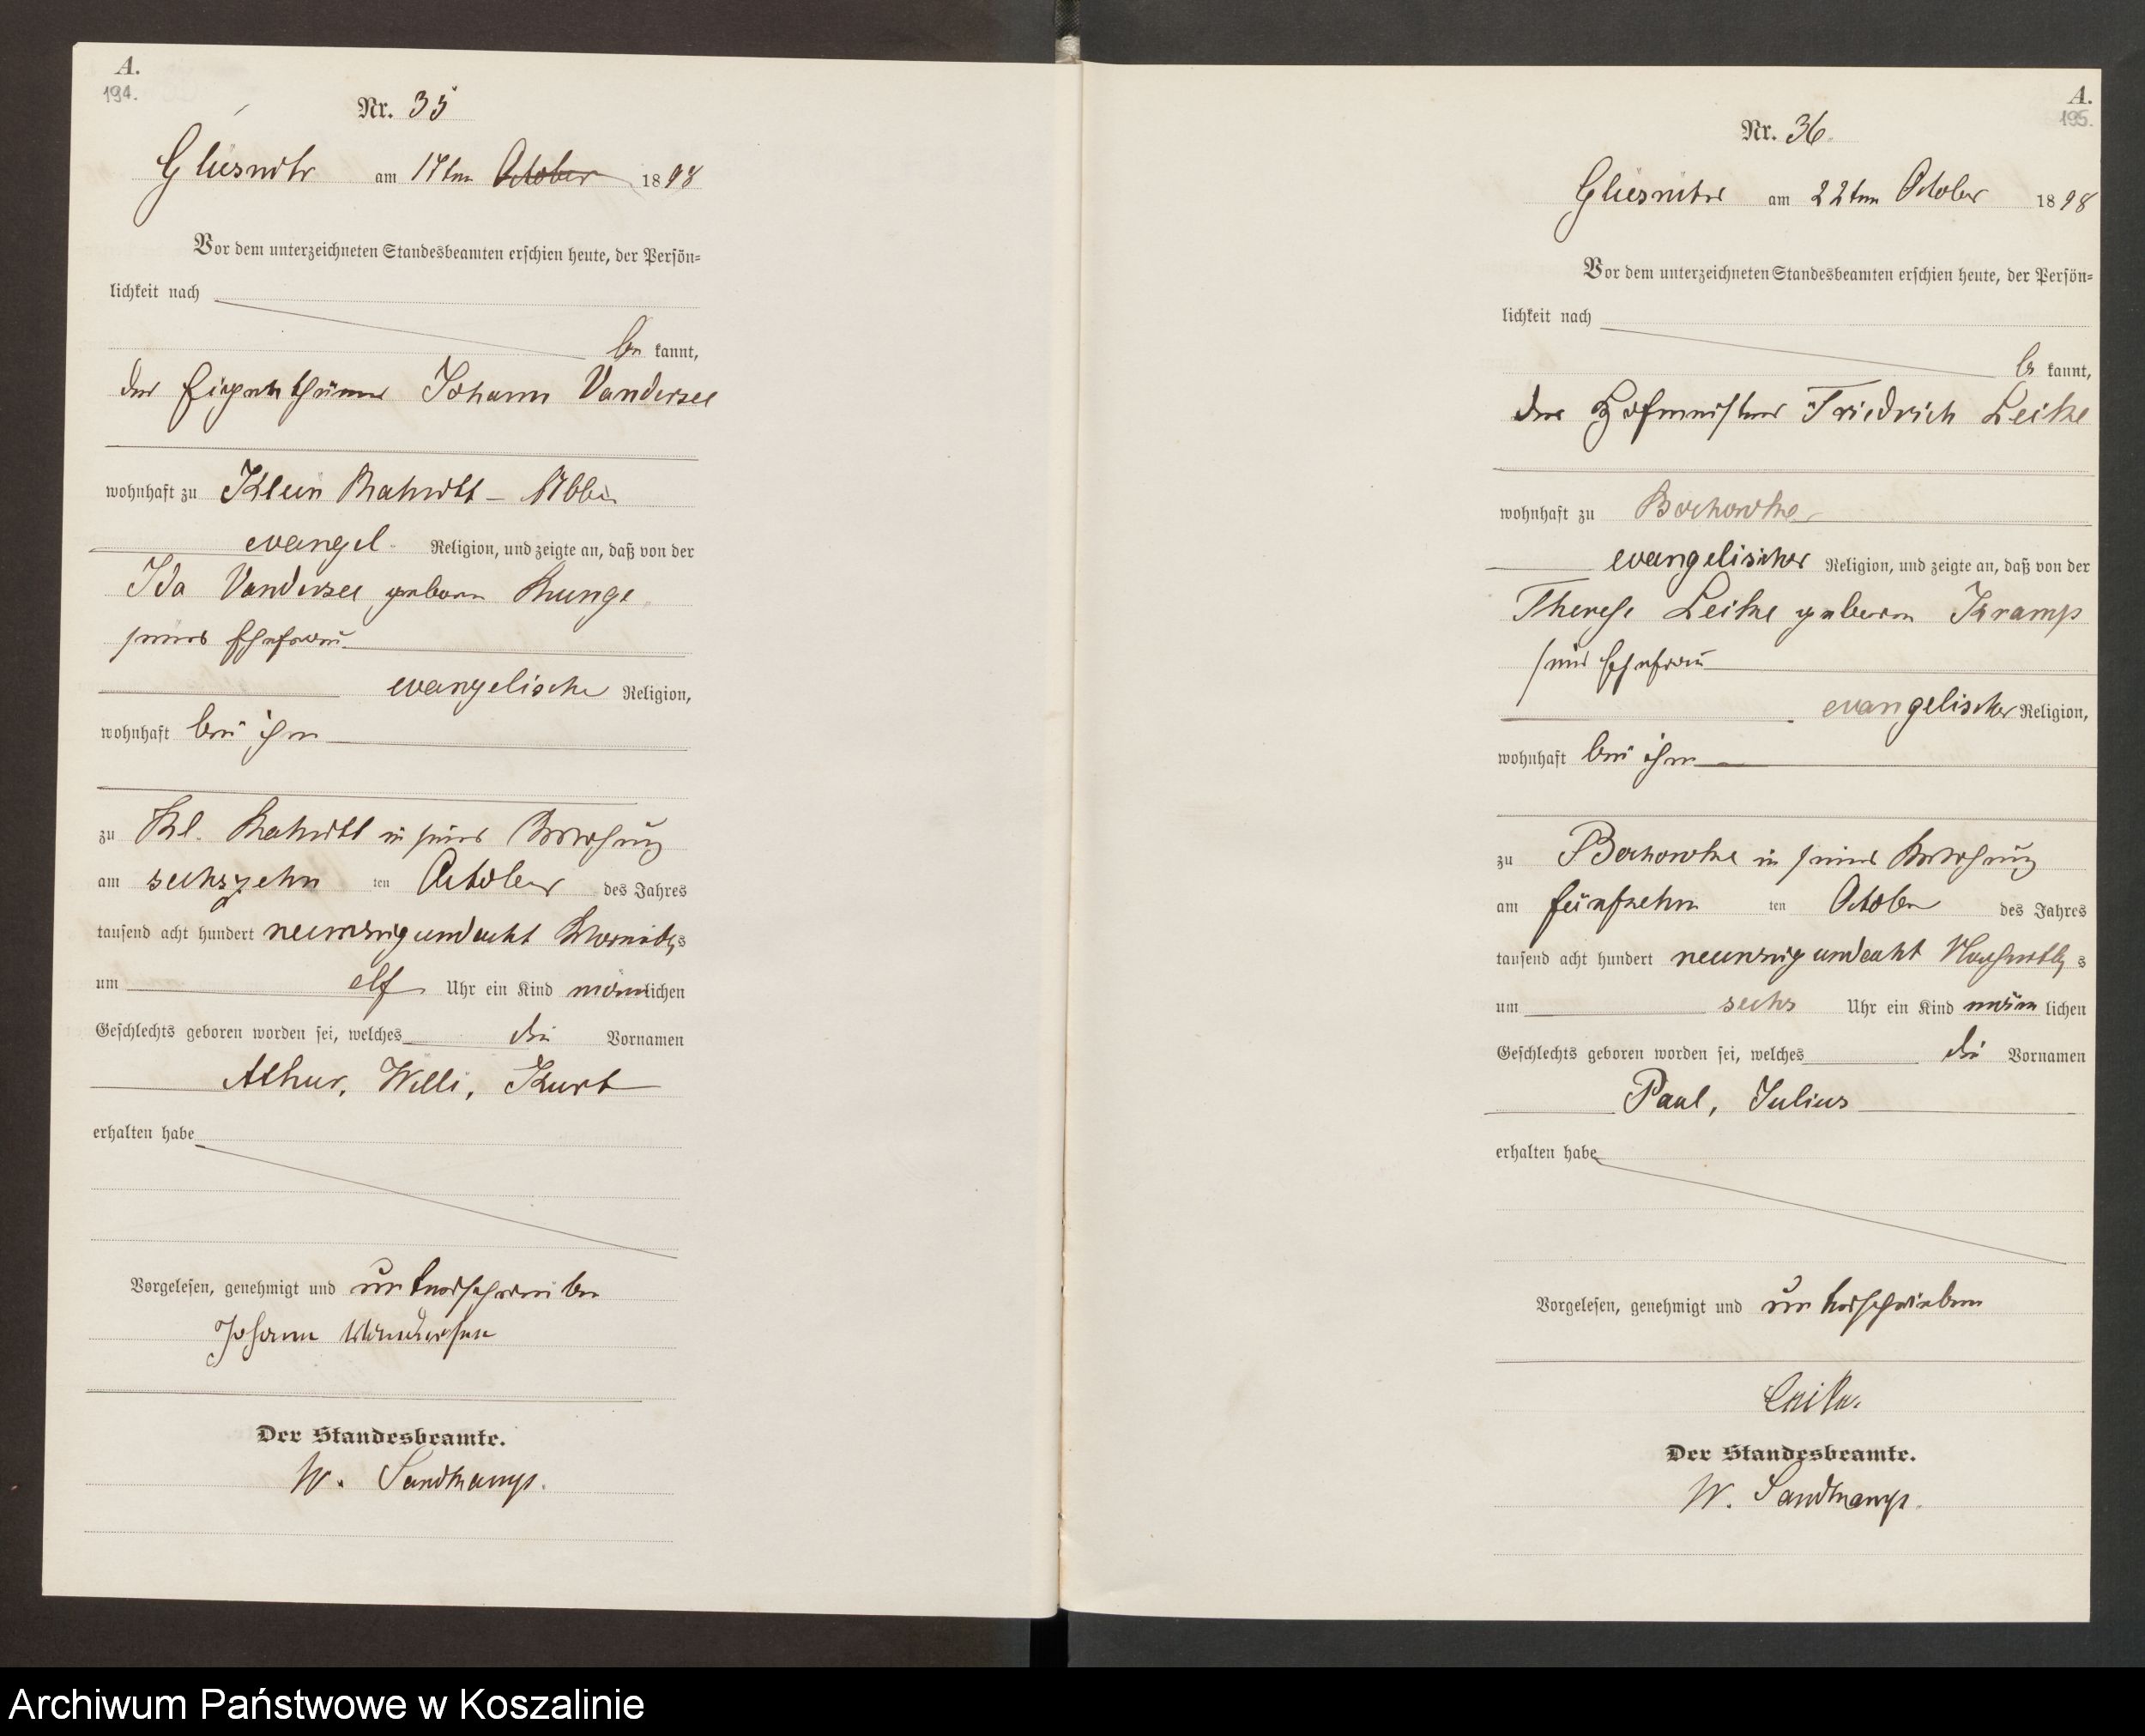 A.
194.
Nr. 35
Glüsnitz am 17ten October 1898
Vor dem unterzeichneten Standesbeamten erschien heute, der Persön=
lichkeit nach
be kannt,
der Eigenthümer Johann Vandersee
wohnhaft zu Klein Rakitt - Abbau
evangel. Religion, und zeigte an, daß von der
Ida Vandersee geboren Runge
seiner Ehefrau
evangelische Religion,
wohnhaft bei ihm
zu Kl. Rakitt in seiner Wohnung
am sechszehn ten October des Jahres
tausend acht hundert neunzig und acht Vormittags
um elf Uhr ein Kind männlichen
Geschlechts geboren worden sei, welches die Vornamen
Athur, Willi, Kurt
erhalten habe
Vorgelesen, genehmigt und unterschrieben
Johann Wandersee
Der Standesbeamte.
W. Sandkamp.
A.
195.
Nr. 36.
am 22ten October 1898
Vor dem unterzeichneten Standesbeamten erschien heute, der Persön=
lichkeit nach
be kannt,
der Hofmeister Friedrich Leike
wohnhaft zu Bochowke
evangelischer Religion, und zeigte an, daß von der
Therese Leike geboren Kramp
seine Ehefrau
evangelischer Religion,
wohnhaft bei ihm
zu Bochowke in seiner Wohnung
am fünfzehn ten October des Jahres
tausend acht hundert neunzig und acht Nachmittags
um sechs Uhr ein Kind männ lichen
Geschlechts geboren worden sei, welches die Vornamen
Paul, Julius
erhalten habe
Vorgelesen, genehmigt und unterschrieben
Leike.
Der Standesbeamte.
W. Sandkamp.
Archiwum Państwowe w Koszalinie